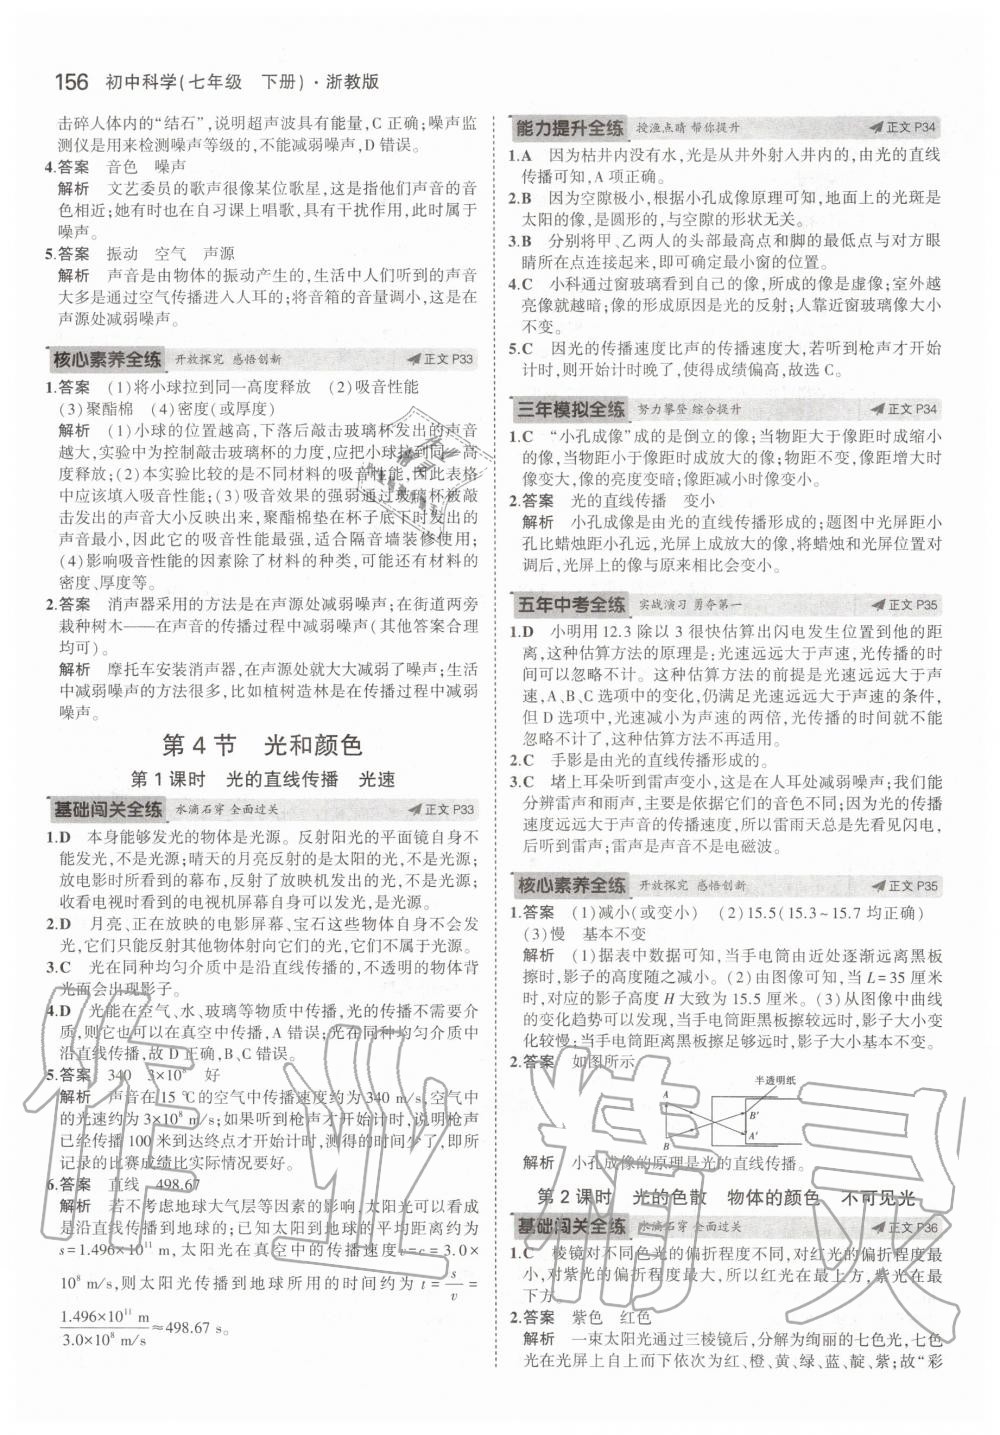 156 初中科学(七年级　下册)·浙教版
击碎人体内的“结石”,说明超声波具有能量,C 正确;噪声监
测仪是用来检测噪声等级的,不能减弱噪声,D 错误。
4.答案　音色　噪声
解析　文艺委员的歌声很像某位歌星,这是指他们声音的音
色相近;她有时也在自习课上唱歌,具有干扰作用,此时属于
噪声。
5.答案　振动　空气　声源
解析　声音是由物体的振动产生的,生活中人们听到的声音
大多是通过空气传播进入人耳的;将音箱的音量调小,这是在
声源处减弱噪声。
核心素养全练　开放探究 感悟创新　正文 P33
1.答案　(1)将小球拉到同一高度释放　(2)吸音性能
(3)聚酯棉　(4)密度(或厚度)
解析　(1)小球的位置越高,下落后敲击玻璃杯发出的声音
越大,实验中为控制敲击玻璃的力度,应把小球拉到同一高
度释放;(2)本实验比较的是不同材料的吸音性能,因此表格
中应该填入吸音性能;(3)吸音效果的强弱通过玻璃杯被敲
击发出的声音大小反映出来,聚酯棉垫在杯子底下时发出的
声音最小,因此它的吸音性能最强,适合隔音墙装修使用;
(4)影响吸音性能的因素除了材料的种类,可能还有材料的
密度、厚度等。
2.答案　消声器采用的方法是在声源处减弱噪声;在街道两旁
栽种树木——在声音的传播过程中减弱噪声(其他答案合理
均可)。
解析　摩托车安装消声器,在声源处就大大减弱了噪声;生活
中减弱噪声的方法很多,比如植树造林是在传播过程中减弱
噪声。
第 4 节　光和颜色
第 1 课时　光的直线传播　光速
基础闯关全练　水滴石穿 全面过关　正文 P33
1.D　本身能够发光的物体是光源。反射阳光的平面镜自身不
能发光,不是光源;晴天的月亮反射的是太阳的光,不是光源;
放电影时所看到的幕布,反射了放映机发出的光,不是光源;
收看电视时看到的电视机屏幕自身可以发光,是光源。
2.D　月亮、正在放映的电影屏幕、宝石这些物体自身不会发
光,我们只是看到其他物体射向它们的光,它们不属于光源。
3.C　光在同种均匀介质中是沿直线传播的,不透明的物体背
光面会出现影子。
4.D　光能在空气、水、玻璃等物质中传播,光的传播不需要介
质,则它也可以在真空中传播,A 错误;光在同种均匀介质中
沿直线传播,故 D 正确,B、C 错误。
5.答案　340　3×10⁸　好
解析　声音在 15 ℃的空气中传播速度约为 340 m/s,空气中
的光速约为 3×10⁸ m/s;如果听到枪声才开始计时,说明枪声
已经传播 100 米到达终点才开始计时,测得的时间少了,即所
记录的比赛成绩比实际情况要好。
6.答案　直线　498.67
解析　若不考虑地球大气层等因素的影响,太阳光可以看成
是沿直线传播到地球的;已知太阳到地球的平均距离约为
s=1.496×10¹¹ m,太阳光在真空中的传播速度 v=c=3.0×
10⁸ m/s,则太阳光传播到地球所用的时间约为 t=s/v=
1.496×10¹¹ m/3.0×10⁸ m/s≈498.67 s。
能力提升全练　授渔点睛 帮你提升　正文 P34
1.A　因为枯井内没有水,光是从井外射入井内的,由光的直线
传播可知,A 项正确。
2.B　因为空隙极小,根据小孔成像原理可知,地面上的光斑是
太阳的像,是圆形的,与空隙的形状无关。
3.B　分别将甲、乙两人的头部最高点和脚的最低点与对方眼
睛所在点连接起来,即可确定最小窗的位置。
4.C　小科通过窗玻璃看到自己的像,所成的像是虚像;室外越
亮像就越暗;像的形成原因是光的反射;人靠近窗玻璃像大小
不变。
5.C　因光的传播速度比声的传播速度大,若听到枪声才开始
计时,则开始计时晚了,使得成绩偏高,故选 C。
三年模拟全练　努力攀登 综合提升　正文 P34
1.C　“小孔成像”成的是倒立的像;当物距大于像距时成缩小
的像,当物距小于像距时成放大的像;物距不变,像距增大时
像变大,像的亮度变暗;像距减小时像变小。
2.答案　光的直线传播　变小
解析　小孔成像是由光的直线传播形成的;题图中光屏距小
孔比蜡烛距小孔远,光屏上成放大的像,将蜡烛和光屏位置对
调后,光屏上的像与原来相比会变小。
五年中考全练　实战演习 勇夺第一　正文 P35
1.D　小明用 12.3 除以 3 很快估算出闪电发生位置到他的距
离,这种估算方法的原理是:光速远远大于声速,光传播的时
间可以忽略不计。这种估算方法的前提是光速远远大于声
速,A、B、C 选项中的变化,仍满足光速远远大于声速的条件,
但 D 选项中,光速减小为声速的两倍,光传播的时间就不能
忽略不计了,这种估算方法不再适用。
2.C　手影是由光的直线传播形成的。
3.C　堵上耳朵听到雷声变小,这是在人耳处减弱噪声;我们能
分辨雷声和雨声,主要是依据它们的音色不同;因为光的传播
速度远远大于声音的传播速度,所以雷雨天总是先看见闪电,
后听到雷声;雷声是声音不是电磁波。
核心素养全练　开放探究 感悟创新　正文 P35
1.答案　(1)减小(或变小)　(2)15.5(15.3~15.7 均正确)
(3)慢　基本不变
解析　(1)据表中数据可知,当手电筒由近处逐渐远离黑板
擦时,影子的高度随之减小。(2)由图像可知,当 L=35 厘米
时,对应的影子高度 H 大致为 15.5 厘米。(3)从图像中曲线
的变化趋势可以发现,当手电筒距黑板擦较远时,影子大小变
化较慢;当手电筒距离黑板擦足够远时,影子大小基本不变。
2.答案　如图所示
半透明纸
A　B′
B　A′
解析　小孔成像的原理是光的直线传播。
第 2 课时　光的色散　物体的颜色　不可见光
基础闯关全练　水滴石穿 全面过关　正文 P36
1.C　棱镜对不同色光的偏折程度不同,对红光的偏折程度最
小,对紫光的偏折程度最大,所以红光在最上方,紫光在最
下方。
2.答案　紫色　红色
解析　一束太阳光通过三棱镜后,分解为绚丽的七色光,七色
光在光屏上自上而下依次为红、橙、黄、绿、蓝、靛、紫;故“彩
作业精灵